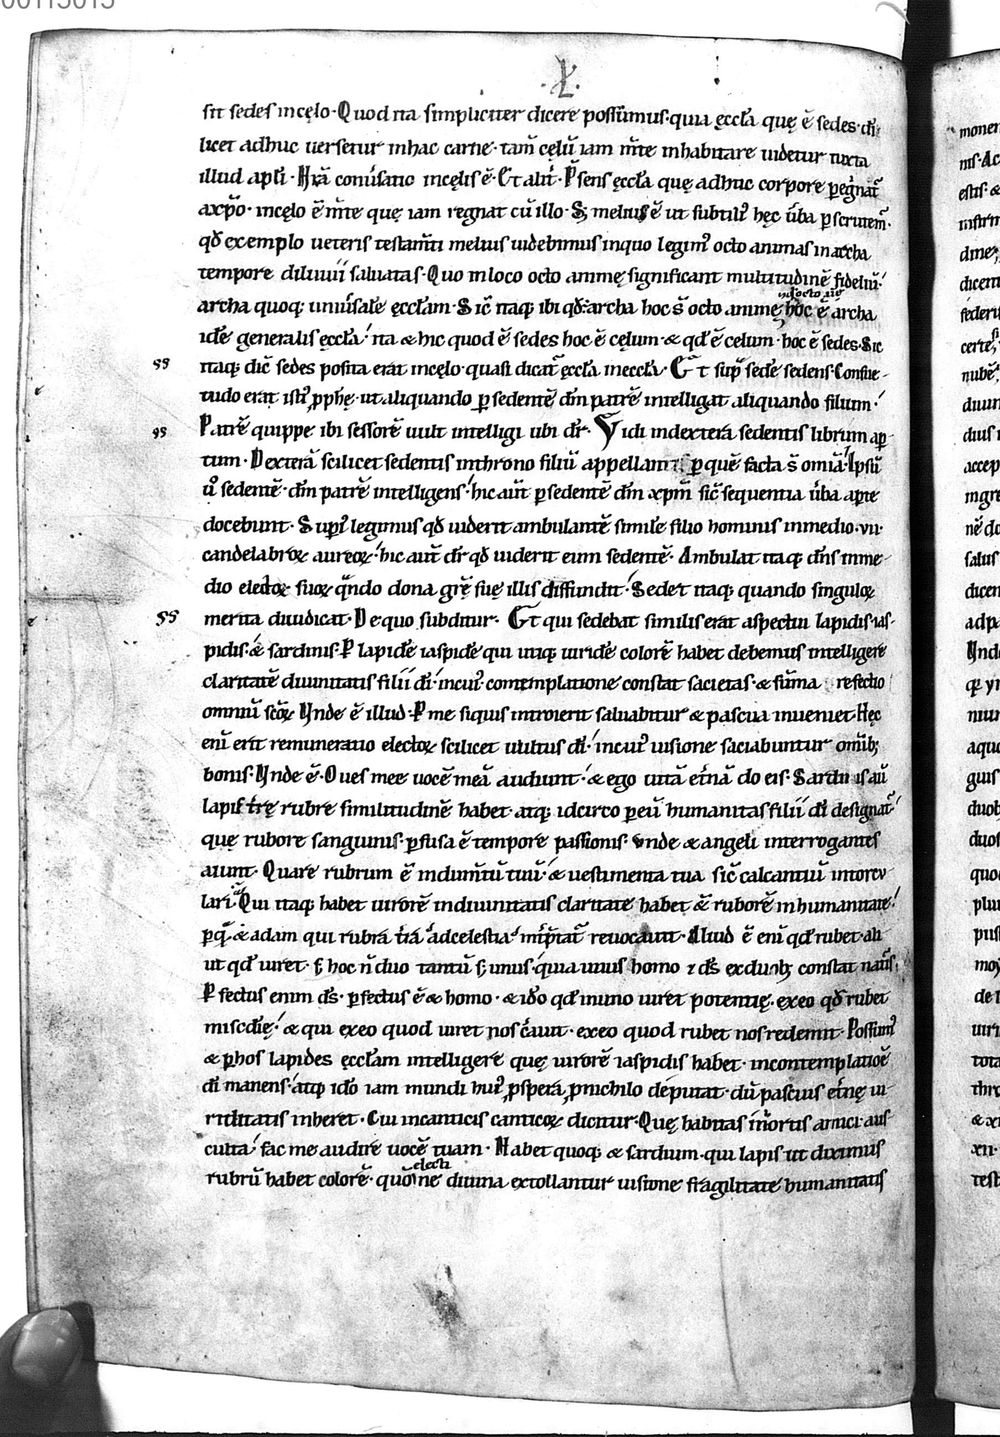 00115015
·X·
sit sedes in cęlo· Quod ita simpliciter dicere possumus· quia ęccła quę ē sedes· di
licet adhuc uersetur in hac carne· tam̄ cęlū iam m̄te inhabitare uidetur iuxta
illud apłi· Nr̄a conūsatio in cęlis ē· Et alít́· P̄sens ęccła quę adhuc corpore ꝑegrinat᷑
a xp̄o· in cęlo ē m̄te quę iam regnat cū illo· Sꝫ melius ē ut subtiliꝰ hęc ūba ꝑscrutem᷑·
qđ exemplo ueteris testam̄ti melius uidebimus in quo legimꝰ octo animas in archa
tempore diluuii saluatas· Quo in loco octo animę significant multitudinē fideliū·
archa quoqꝫ uniūsalē ęccłam· Sic̄ itaqꝫ ibi qđ archa hoc s̄ octo animę hoc ē archa
idē generalis ęccła· ita & hic quod ē sedes hoc ē cęlum· & qđ ē celum· hoc ē sedes· Sic
itaqꝫ dic̄ sedes posita erat in cęlo· quasi dicat᷑ ęccła in eccła· Et sup̄ sedē sedens· Consue-
tudo erat istiꝰ ꝓphę· ut aliquando ꝑ sedentē dm̄ patrē intelligat aliquando filium·
Patrē quippe ibi sessorē uult intelligi ubi dr̄· Vidi in dextera sedentis librum ap-
tum· Dexterā scilicet sedentis in throno filiū appellam ꝑ quē facta s̄ omīa· Ipsū
ū sedentē· dm̄ patrē intelligens· hic aūt ꝑ sedentē dm̄ xpm̄ sic̄ sequentia ūba aꝑte
docebunt· Supiꝰ legimus qđ uiderit ambulantē similē filio hominis in medio· vii·
candelabroꝝ aureoꝝ· hic aūt dr̄ qđ uiderit eum sedentē· Ambulat itaqꝫ dn̄s in me-
dio electoꝝ suoꝝ q̄ndo dona gr̄ę suę illis diffundit· Sedet itaqꝫ quando singuloꝝ
merita diuidicat· De quo subditur· Et qui sedebat similis erat aspectui lapidis ias-
pidis· & sardinis· P̄ lapidē iaspidē qui utiqꝫ uiridē colorē habet debemus intelligere
claritatē diuinitatis filii di· in cuiꝰ contemplatione constat sacietas· & sūma refectio
omniū sc̄oꝝ Vnde ē illud· P̄ me siquis introierit saluabitur & pascua inueniet· Hęc
eni erit remuneratio electoꝝ scilicet uultus di· in cuiꝰ uisione saciabuntur omībꝫ
bonis· Vnde ē· Oues mee uocē meā audiunt· & ego uitā et̄nā do eis· Sardinis aū
lapis tr̄ę rubrę similitudinē habet· atqꝫ idcirco ꝑ eū humanitas filii di designat᷑·
quę rubore sanguinis· ꝑfusa ē tempore passionis· vnde & angeli interrogantes
aiunt· Quare rubrum ē indum̄tū tuū· & uestimenta tua sic̄ calcantiū in torcu-
lari· Qui itaqꝫ habet uirorē in diuinitatis claritate habet & ruborē in humanitate·
& adam qui rubrā tr̄ā ad celestia revocauit· Aliud ē eni qđ rubet· ali-
ut qđ uiret· s; hoc n̄ duo tantū s; unus· quia unus homo ⁊ ds̄ ex duabꝫ constat
P̄fectus enim ds̄· ꝑfectus ē & homo· & ido qđ in uno uiret potentię· ex eo qđ rubet
mīscdię· & qui ex eo quod uiret nos c̄auit· ex eo quod rubet nos redemit· Possumꝰ
& ꝑ hos lapides ęccłam intelligere quę uirorē iaspidis habet· in contemplationē
di manens· atqꝫ idō iam mundi huiꝰ ꝓspera ꝓ nichilo deputat· dū pascuis et̄nę ui-
riditatis inheret· Cui in canticis canticoꝝ dicitur· Quę habitas in ortis amici aus-
culta· fac me audire uocē tuam· Habet quoqꝫ & sardium· qui lapis ut diximus
electi
rubrū habet colorē· quō ne diuina extollantur uisione fragilitatē humanitatis